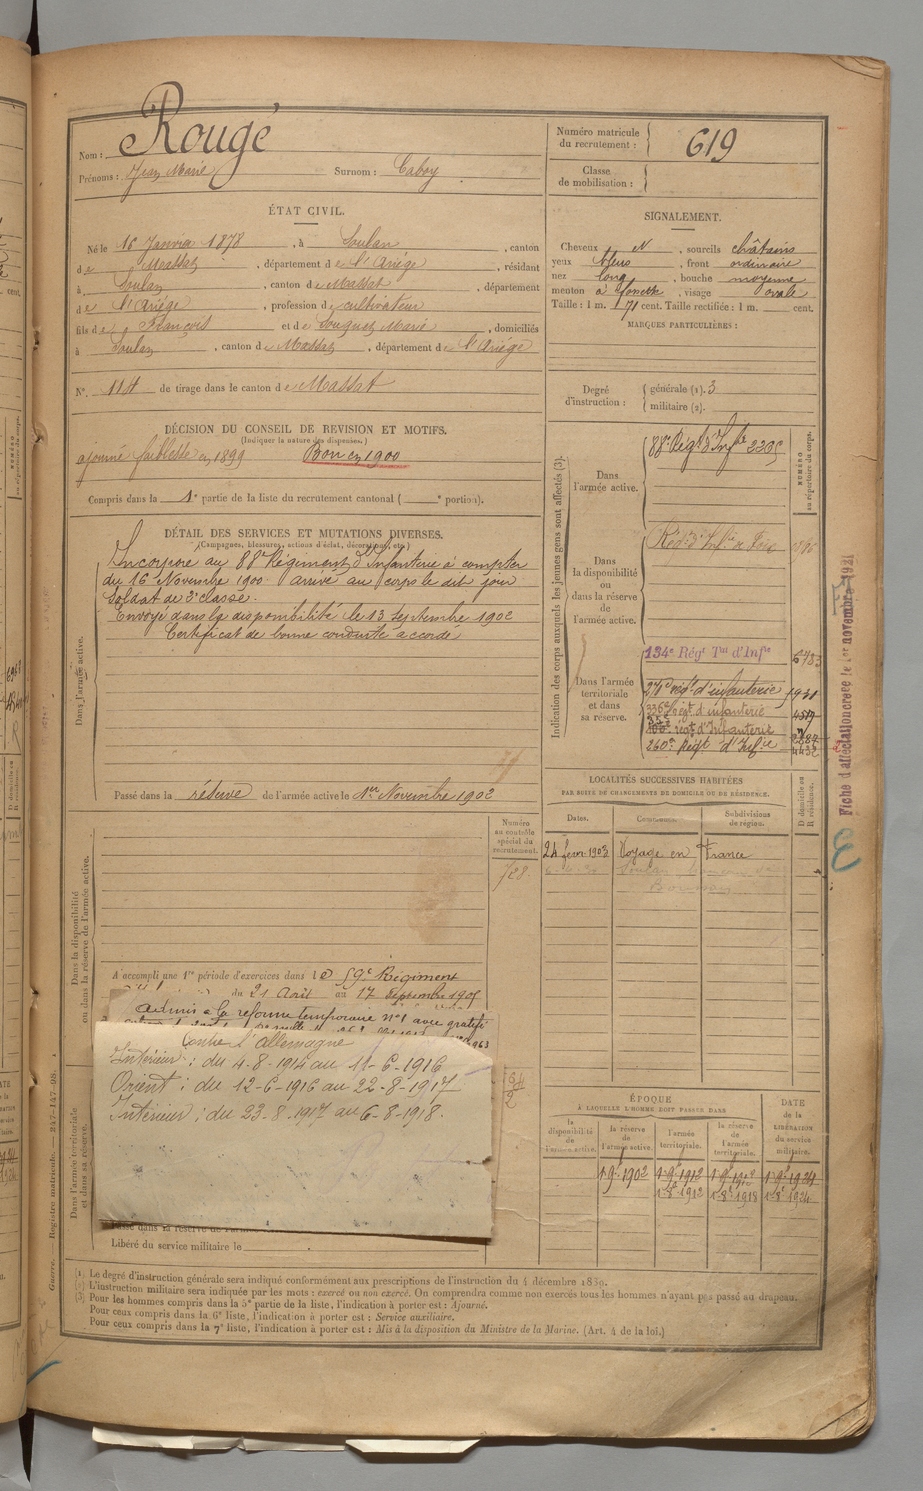 Nom : Rougé
Prénoms : Jean Marie Surnom : Caboy
ÉTAT CIVIL.
Né le 16 Janvier 1878, à Soulan, canton
de Massat, département de l'Ariége, résidant
à Soulan, canton de Massat, département
de l'Ariége, profession de cultivateur
fils de François et de Souquet Marie, domiciliés
à Soulan, canton de Massat, département de l'Ariége
N° 114 de tirage dans le canton de Massat
DÉCISION DU CONSEIL DE REVISION ET MOTIFS.
(Indiquer la nature des dispenses.)
ajourné faiblesse en 1899 Bon en 1900
Compris dans la 1e partie de la liste du recrutement cantonal ( e portion).
DÉTAIL DES SERVICES ET MUTATIONS DIVERSES.
(Campagnes, blessures, actions d'éclat, décorations, etc.)
Dans l'armée active.
Incorporé au 88e Régiment d'Infanterie à compter
du 16 Novembre 1900. arrivé au corps le dit jour
Soldat de 2e classe.
Envoyé dans la disponibilité le 13 Septembre 1902
Certificat de bonne conduite accordé
Passé dans la réserve de l'armée active le 1er Novembre 1902
Dans la disponibilité
ou dans la réserve de l'armée active.
Numéro
au contrôle
spécial du
recrutement.
728.
A accompli une 1re période d'exercices dans le 59e Régiment
du 21 Août au 17 Septembre 1905
admis à la réforme temporaire n°1 avec gratifé
Contre l'allemagne
Intérieur : du 4-8-1914 au 11-6-1916
Orient : du 12-6-1916 au 22-8-1917
Intérieur : du 23-8-1917 au 6-8-1918.
Dans l'armée territoriale
et dans sa réserve.
Libéré du service militaire le
Numéro matricule
du recrutement : 619
Classe
de mobilisation :
SIGNALEMENT.
Cheveux N, sourcils châtains
yeux bleus, front ordinaire
nez long, bouche moyenne
menton à fossette, visage ovale
Taille : 1 m. 71 cent. Taille rectifiée : 1 m. cent.
MARQUES PARTICULIÈRES :
Degré
d'instruction :
générale (1). 3
militaire (2).
Indication des corps auxquels les jeunes gens sont affectés (3).
NUMÉRO
au répertoire du corps.
Dans
l'armée active.
88e Régt d'Infie 2205
Dans
la disponibilité
ou
dans la réserve
de
l'armée active.
Régt d'Infie de Foix
Dans l'armée
territoriale
et dans
sa réserve.
134e Régt Tal d'Infie 6783
d'infanterie
régt d'infanterie 4519
régt d'Infanterie
260e Régt d'Infie 4432
Fiche d'affectation créée le 1er novembre 1921
LOCALITÉS SUCCESSIVES HABITÉES
PAR SUITE DE CHANGEMENTS DE DOMICILE OU DE RÉSIDENCE.
Dates. Communes. Subdivisions
de région.
D domicile ou
R résidence.
24 févr. 1903 Voyage en France
ÉPOQUE
À LAQUELLE L'HOMME DOIT PASSER DANS
DATE
de la
LIBÉRATION
du service
militaire.
la
disponibilité
de
l'armée active.
la réserve
de
l'armée active.
l'armée
territoriale.
la réserve
de
l'armée
territoriale.
1-9-1902 1-9-1912 1-9-1924
1-8-1912 1-8-1918 1-8-1924
Guerre. — Registre matricule. — 347-147-98.
(1) Le degré d'instruction générale sera indiqué conformément aux prescriptions de l'instruction du 4 décembre 1889.
(2) L'instruction militaire sera indiquée par les mots : exercé ou non exercé. On comprendra comme non exercés tous les hommes n'ayant pas passé au drapeau.
(3) Pour les hommes compris dans la 5e partie de la liste, l'indication à porter est : Ajourné.
Pour ceux compris dans la 6e liste, l'indication à porter est : Service auxiliaire.
Pour ceux compris dans la 7e liste, l'indication à porter est : Mis à la disposition du Ministre de la Marine. (Art. 4 de la loi.)